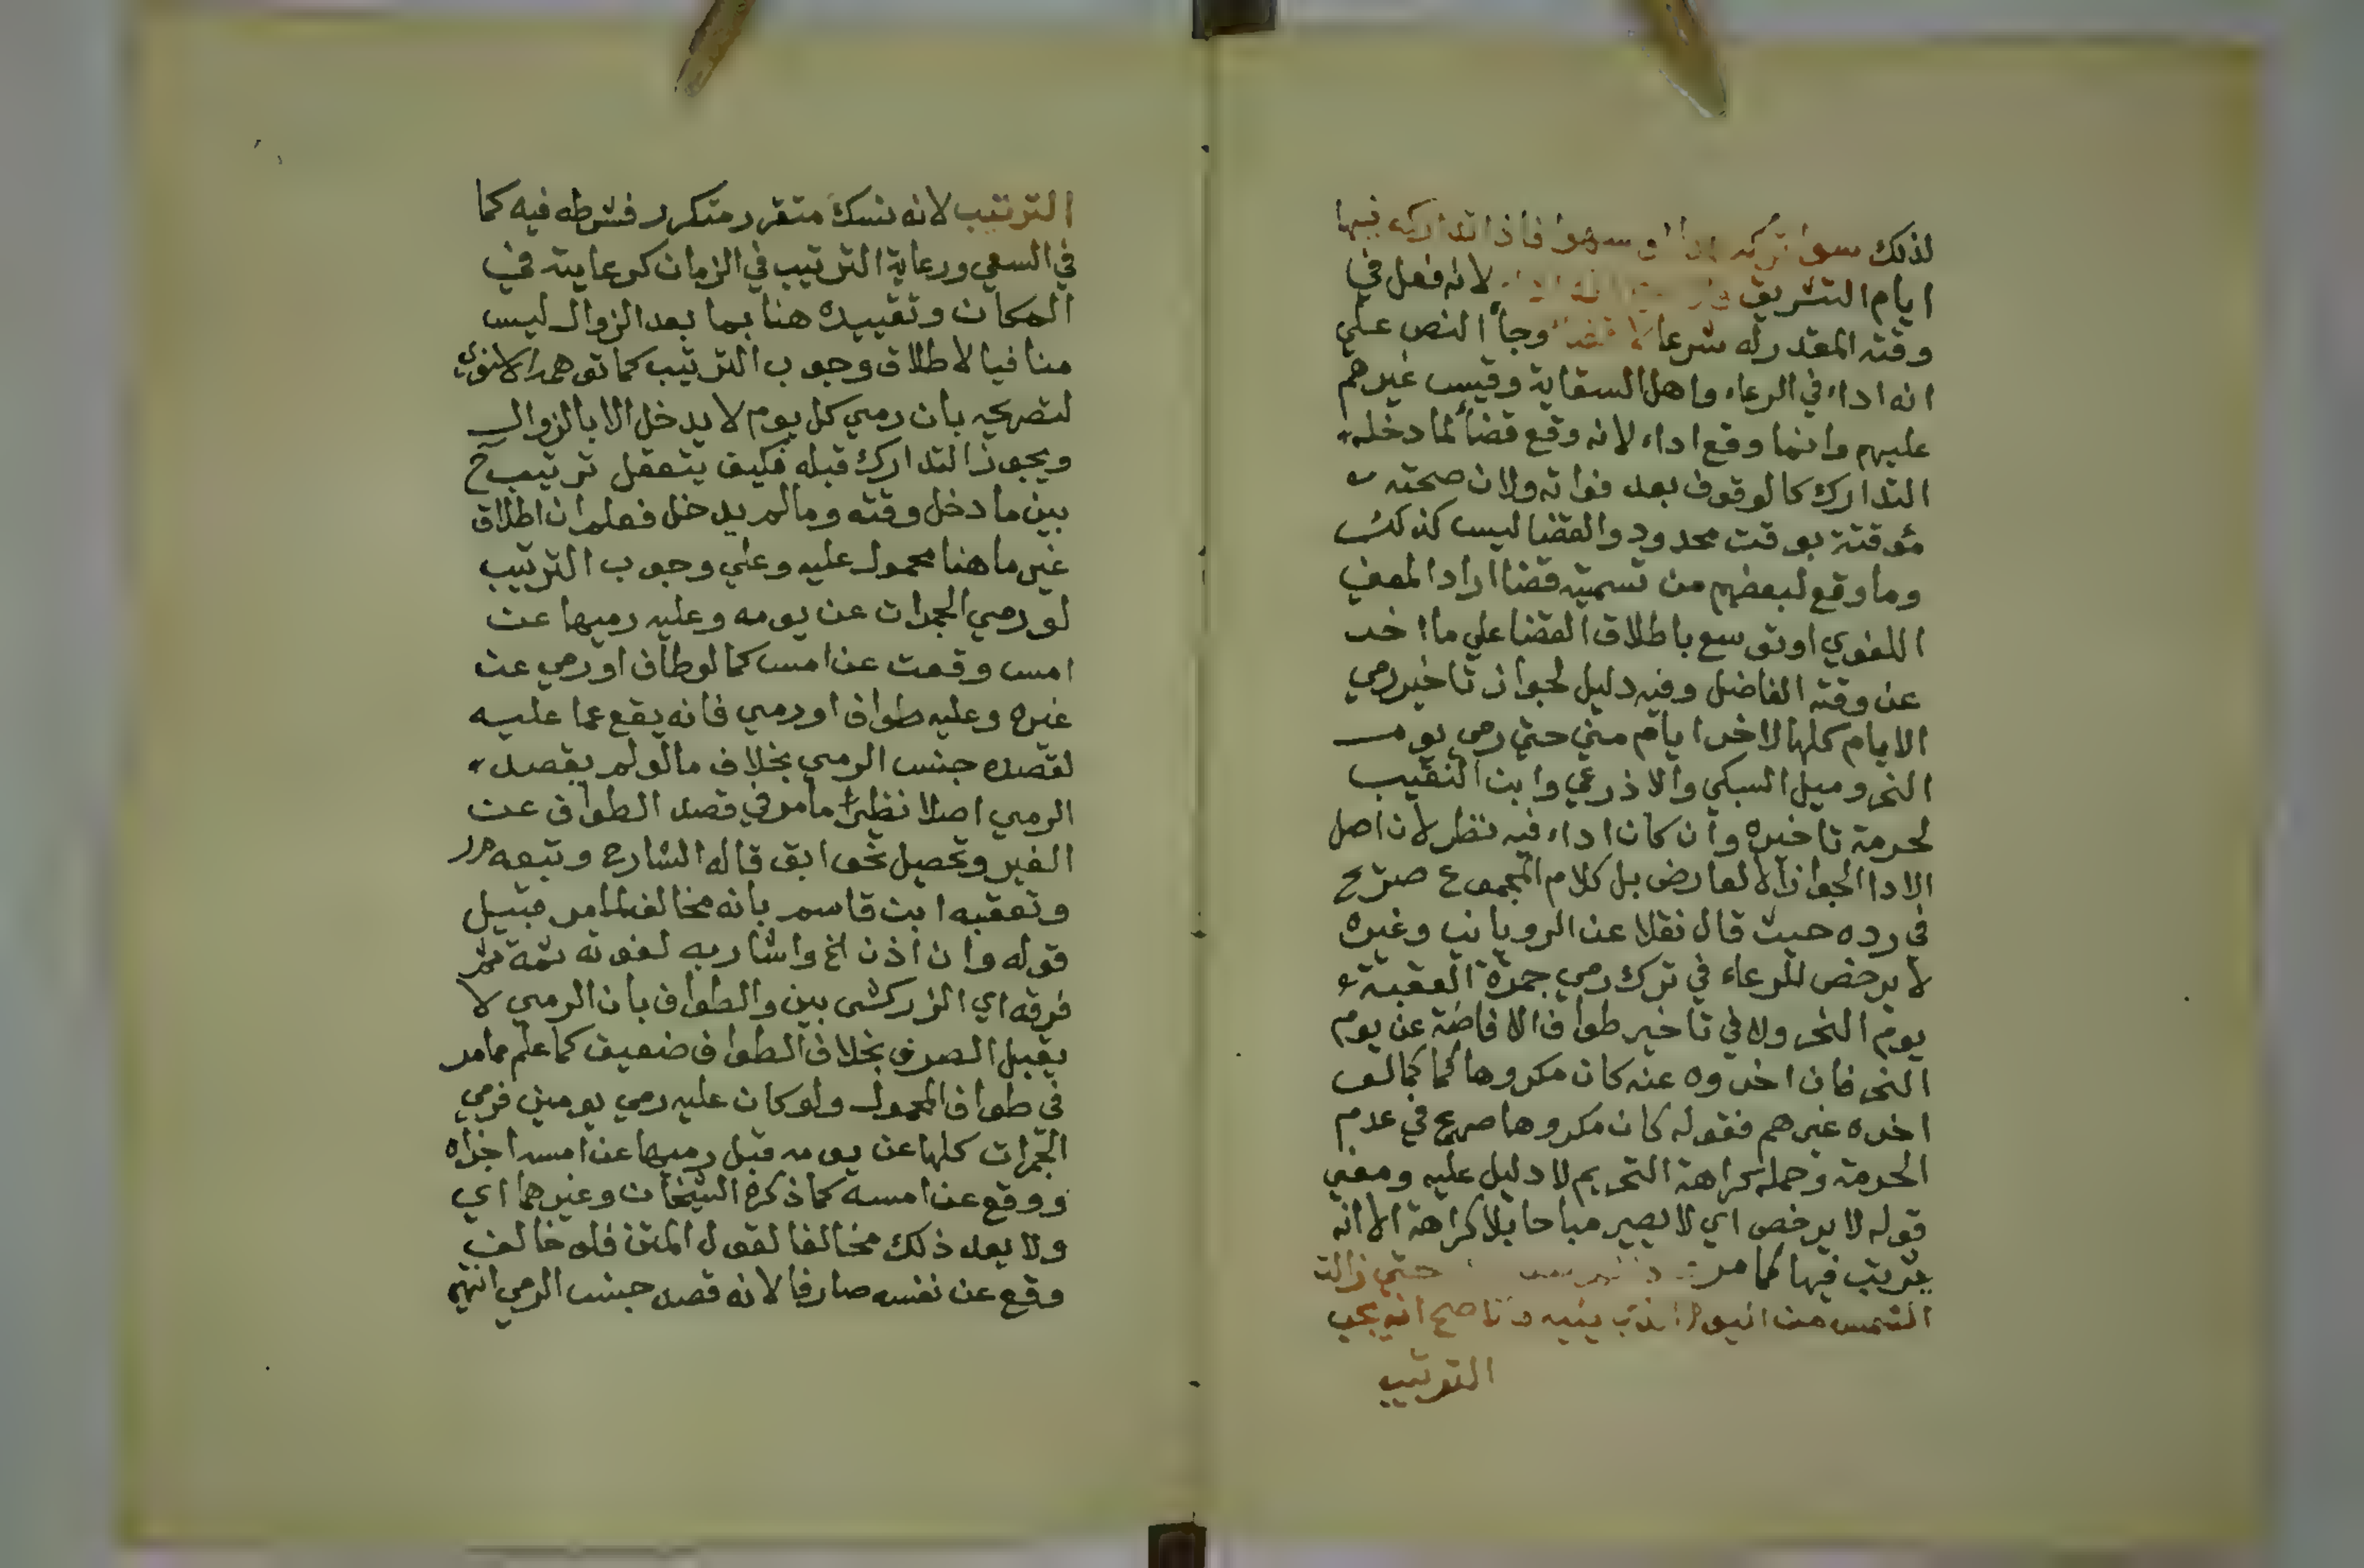 لذلك سوا تركه او سهوا فاذا تداركه فيها
ايام التشريق لانه فعل في
وقته المقدر له شرعا لا قضا وجاء النص علي
انه اداء في الرعاء واهل السقاية وقيس غيرهم
عليهم وانما وقع اداء لانه وقع قضا لما دخله
التدارك كالوقوف بعد فواته ولان صحته
مؤقتة بوقت محدود والقضا ليس كذلك
وما وقع لبعضهم من تسميته قضا اراد المعني
اللغوي او توسع باطلاق القضا علي ما اخر
عن وقته الفاضل وفيه دليل لجواز تاخير رمي
الايام كلها لاخر ايام مني حتي رمي يوم
النحر وميل السبكي والاذرعي وابن النقيب
لحرمة تاخيره وان كان اداء فيه نظر لان اصل
الادا الجواز الا لعارض بل كلام المجموع صرّح
في رده حيث قال نقلا عن الروياني وغيره
لا يرخص للرعاء في ترك رمي جمرة العقبة
يوم النحر ولا في تاخير طواف الافاضة عن يوم
النحر فان اخروه عنه كان مكروها كما لو
اخره غيرهم فقوله كان مكروها صريح في عدم
الحرمة وحمله كراهة التحريم لا دليل عليه ومعني
قوله لا يرخص اي لا يصير مباحا بلا كراهة الا انه
يترتب فيها كما مر حتي زالت
الشمس من اليوم الذي يليه فالاصح انه يجب
الترتيب
الترتيب لانه نسك متقرر متكرر فشرطه فيه كما
في السعي ورعاية الترتيب في الزمان كرعايته في
المكان وتقييده هنا بما بعد الزوال ليس
منافيا لاطلاق وجوب الترتيب كما توهمه الاسنوي
لتصريحه بان رمي كل يوم لا يدخل الا بالزوال
ويجوز التدارك قبله فكيف يتعقل ترتيب ح
بين ما دخل وقته وما لم يدخل فعلم ان اطلاق
غير ما هنا محمول عليه وعلي وجوب الترتيب
لو رمي الجمرات عن يومه وعليه رميها عن
امس وقعت عن امس كما لو طاف او رمي عن
غيره وعليه طواف او رمي فانه يقع عما عليه
لقصده جنس الرمي بخلاف ما لو لم يقصد
الرمي اصلا نظير ما مر في قصد الطواف عن
الغير وتحصيل نحو ابق قاله الشارح وتبعه مر
وتعقبه ابن قاسم بانه مخالف لما مر قبيل
قوله وان اذن الخ واشار به لقوله ثمة ثم
فرقه اي الزركشي بين والطواف بان الرمي لا
يقبل الصرف بخلاف الطواف ضعيف كما علم مما مر
في طواف المحمول ولو كان عليه رمي يومين فرمي
الجمرات كلها عن يومه قبل رميها عن امسه اجزاه
ووقع عن امسه كما ذكره الشيخان وغيرهما اي
ولا يعد ذلك مخالفا لقول المتن فلو خالف
وقع عن نفسه صارفا لانه قصد جنس الرمي انتهي